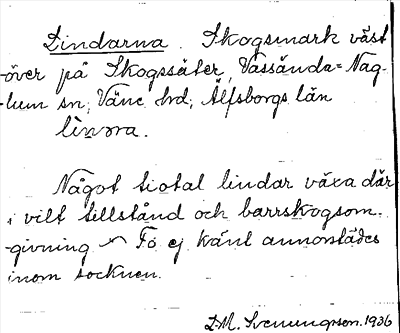 Lindarna. Skogsmark väst
över på Skogssäter, Vassända-Nag-
lum sn, Väne hd, Älfsborgs län
lìnɔra.
Något tiotal lindar växa där
i vilt tillstånd och barrskogsom-
givning. Fö ej känt annorstädes
inom socknen.
D.M. Svenungsson. 1936